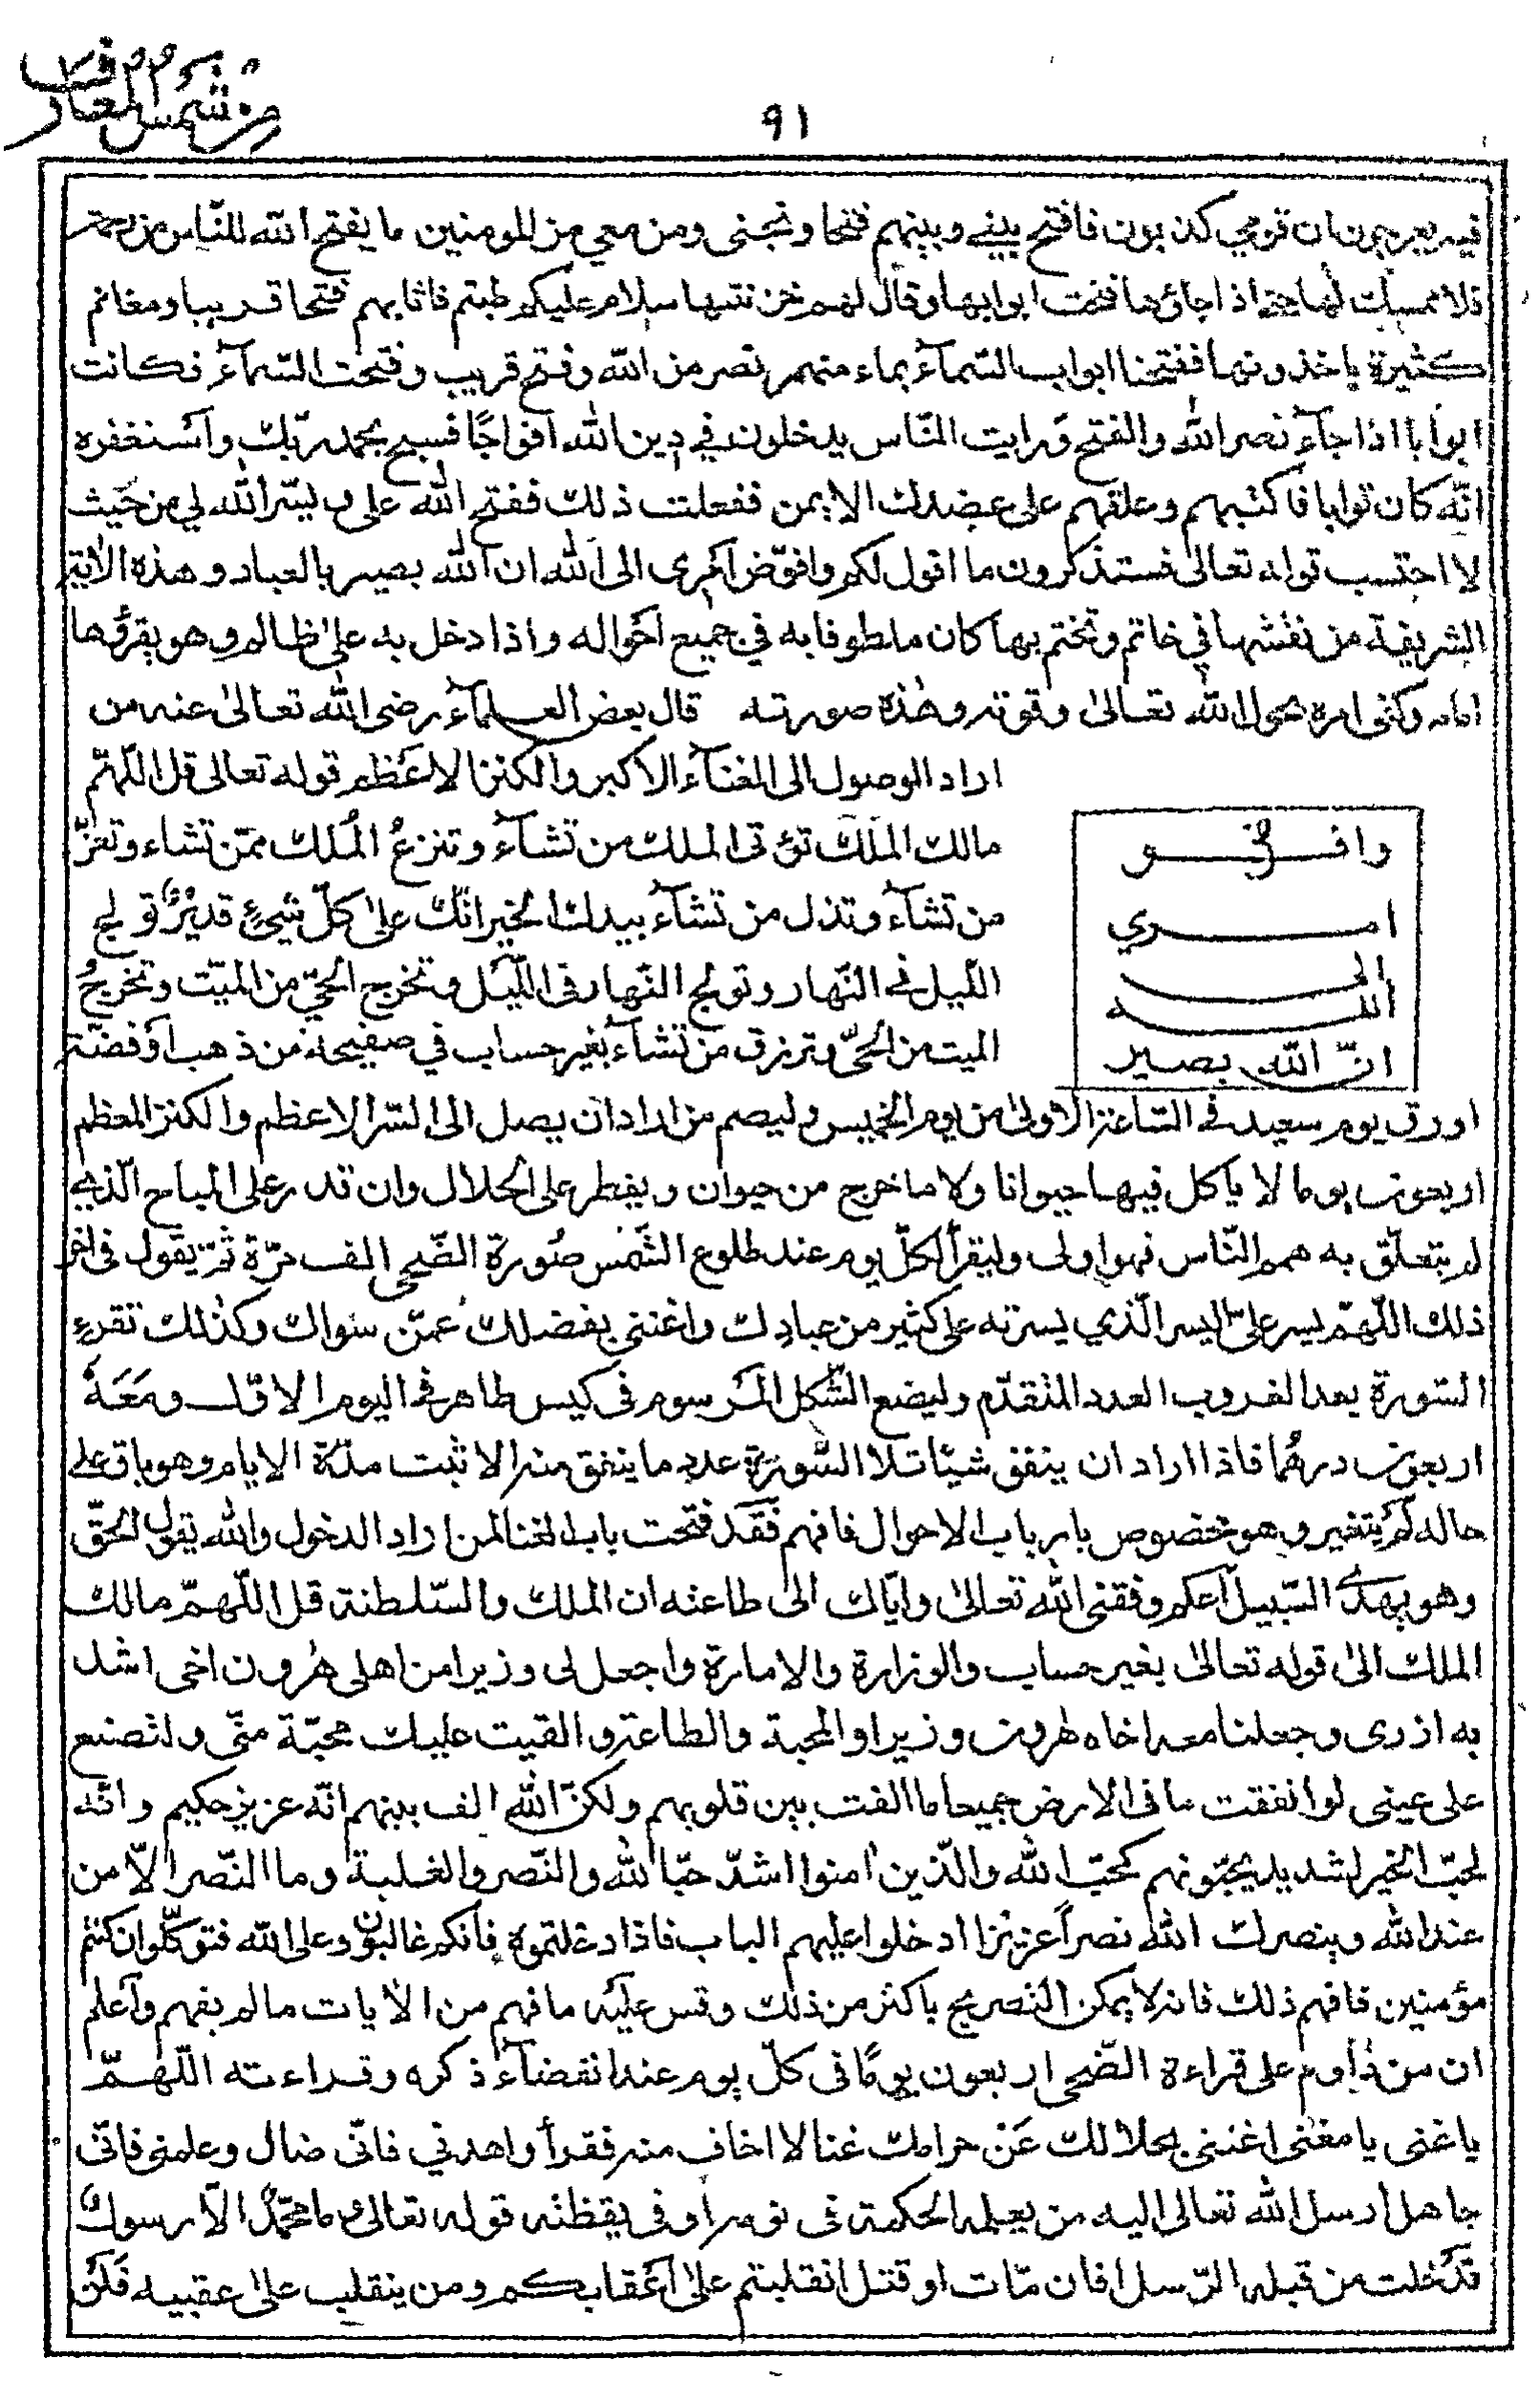 من شمس المعارف
٩١
فيه يعرجون ان قومي كذبون فافتح بيني وبينهم فتحا ونجنى ومن معي من المومنين ما يفتح الله للناس من رحمة
فلا ممسك لها حتى اذا جاؤها فتحت ابوابها وقال لهم خزنتها سلام عليكم طبتم فاثابهم فتحا قريبا ومغانم
كثيرة ياخذونها ففتحنا ابواب السّمآء بماء منهمر نصر من الله وفتح قريب وفتحت السّمآء فكانت
ابوابا اذا جآء نصر الله والفتح ورايت النّاس يدخلون في دين الله افواجًا فسبح بحمد ربّك واستغفره
انّه كان توابا فاكتبهم وعلقهم على عضدك الايمن ففعلت ذلك ففتح الله على ويسّر الله لي من حيث
لا احتسب قوله تعالى فستذكرون ما اقول لكم وافوّض امرى الى الله ان الله بصير بالعباد وهذه الاية
الشريفة من نقشها في خاتم وتختم بها كان ملطوفا به في جميع احواله واذا دخل به على ظالم وهو يقرؤها
امامه وكفى امره بحول الله تعالى وقوته وهذه صورته قال بعض العلمآء رضى الله تعالى عنه من
اراد الوصول الى الغنآء الاكبر والكنز الاعظم قوله تعالى قل اللّهمّ
مالك الملك تؤتى الملك من تشآء وتنزعُ المُلك ممّن تشاء وتعزّ
من تشآء وتذل من تشآء بيدك الخير انّك على كلّ شيءٍ قديرٌ تولج
اللّيل في النّهار وتولج النّهار فى اللّيل وتخرج الحيّ من الميّت وتخرجُ
الميت من الحيّ وترزق من تشآء بغير حساب في صفيحة من ذهب او فضّة
وافوض
امري
الى
الله
انّ الله بصير
او رق يوم سعيد في السّاعة الاولى من يوم الخميس وليصم من اراد ان يصل الى السّر الاعظم والكنز المعظم
اربعون يوما لا ياكل فيها حيوانا ولا ما خرج من حيوان ويفطر على الحلال وان قدر على المباح الّذي
لم يتعلّق به همم النّاس فهو اولى وليقرأ كلّ يوم عند طلوع الشّمس صورة الضّحى الف مرّة ثمّ يقول فى اخر
ذلك اللّهمّ يسر علىّ اليسر الّذي يسرته على كثير من عبادك واغننى بفضلك عمّن سواك وكذلك تقرء
السّورة بعد الغروب العدد المتقدّم وليضع الشّكل المرسوم فى كيس طاهر في اليوم الاوّل ومَعَهُ
اربعون درهما فاذا اراد ان ينفق شيئا تلا السّورة عدد ما ينفق منه الا ثبت مدّة الايام وهو باق على
حاله لم يتغير وهو مخصوص بارباب الاحوال فافهم فقد فتحت باب الغنا لمن اراد الدخول والله يقول الحقّ
وهو يهدى السّبيل اعلم وفقنى الله تعالى وايّاك الى طاعته ان الملك والسّلطنة قل اللّهمّ مالك
الملك الى قوله تعالى بغير حساب والوزارة والامارة واجعل لى وزيرا من اهلى هٰرون اخى اشدد
به ازرى وجعلنا معه اخاه هٰرون وزيرا والمحبة والطاعة والقيت عليك محبّة منّى ولتصنع
على عينى لو انفقت ما فى الارض جميعا ما الفت بين قلوبهم ولكنّ الله الف بينهم انّه عزيز حكيم وانّه
لحبّ الخير لشديد يحبّونهم كحبّ الله والّذين امنوا اشدّ حبّا لله والنّصر والغلبة وما النّصر الّا من
عند الله وينصرك الله نصراً عزيزا ادخلوا عليهم الباب فاذا دخلتموه فانكم غالبون وعلى الله فتوكّلوا ان كنتم
مؤمنين فافهم ذلك فانه لا يمكن التّصريح باكثر من ذلك وقس عليه ما فهم من الايات ما لم يفهم واعلم
ان من داوم على قراءة الضّحى اربعون يومًا فى كلّ يوم عند انقضآء ذكره وقراءته اللّهمّ
يا غنى يا مغنى اغننى بحلالك عَنْ حرامك غنا لا اخاف منه فقرأ واهدني فانّى ضال وعلمنى فانّى
جاهل ارسل الله تعالى اليه من يعلمه الحكمة فى نومه او فى يقظته قوله تعالى وما محمّدٌ الّا رسول
قد خلت من قبله الرّسل افان مّات او قتل انقلبتم على اعقابكم ومن ينقلب على عقبيه فلن